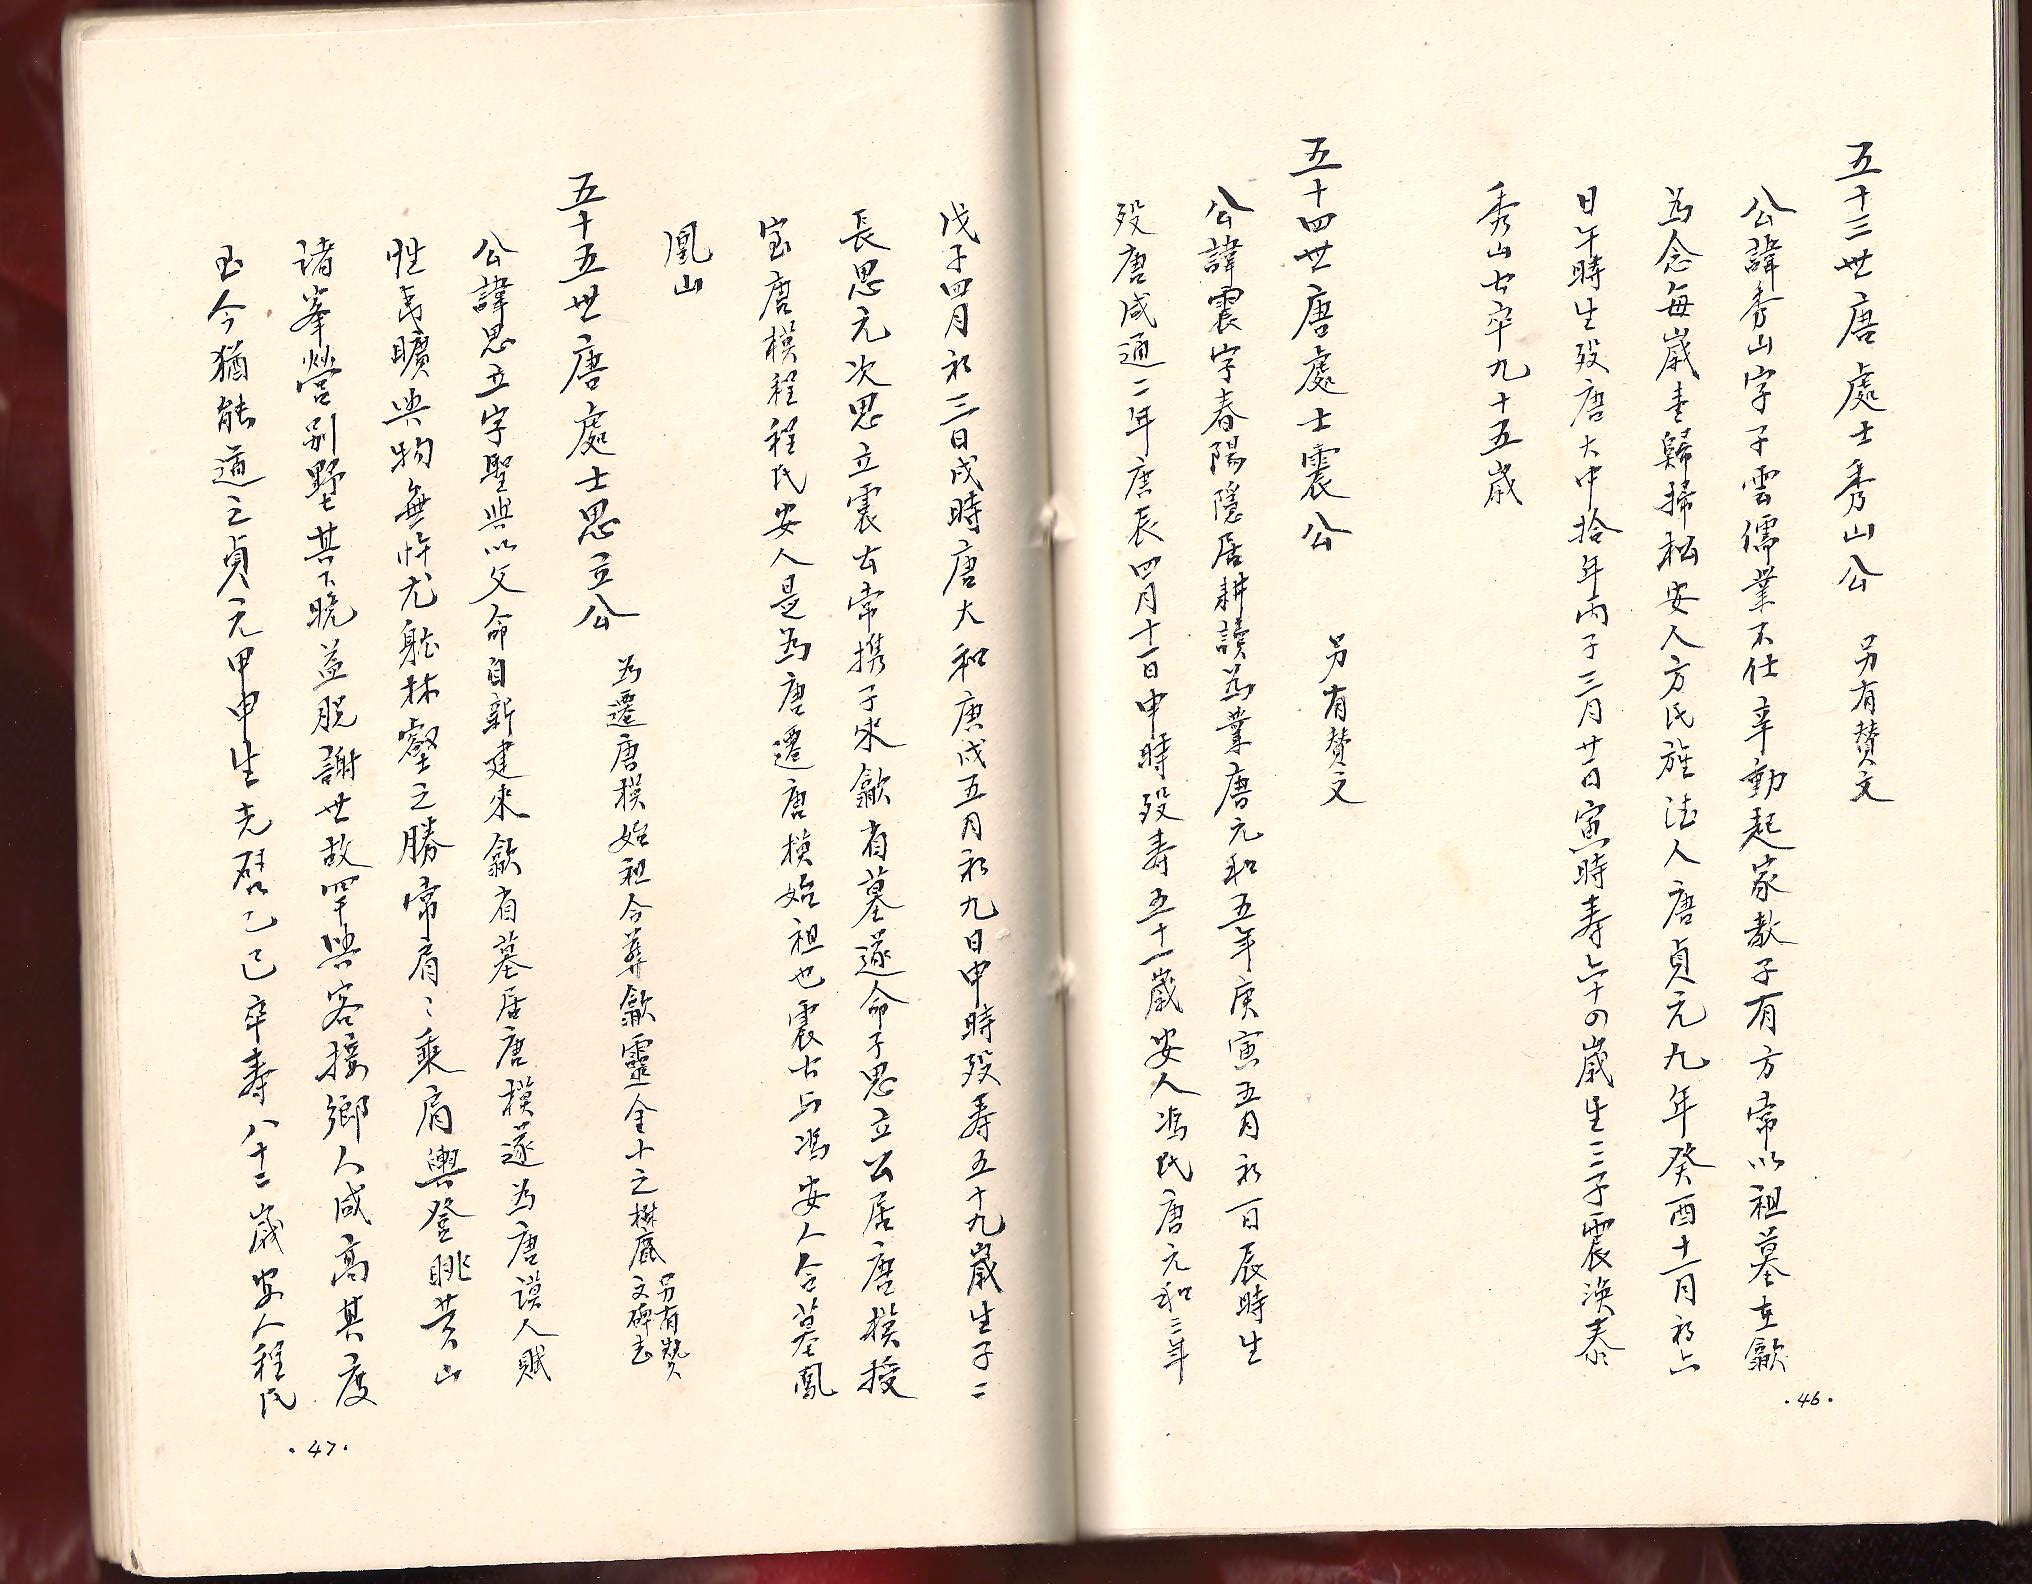 五十三世唐處士秀山公　另有贊文
公諱秀山字子雲儒業不仕辛勤起家教子有方常以祖墓在歙
為念每歲聿歸掃松安人方氏旌德人唐貞元九年癸酉十一月初六
日午時生歿唐大中拾年丙子三月廿日寅時壽六十四歲生三子震渙泰
秀山公卒九十五歲
五十四世唐處士震公　另有贊文
公諱震字春陽隱居耕讀為業唐元和五年庚寅五月初一日辰時生
歿唐咸通二年庚辰四月十一日申時歿壽五十一歲安人馮氏唐元和三年
戊子四月初三日戌時唐大和庚戌五月初九日申時歿壽五十九歲生子二
長思元次思立震公常携子來歙省墓遂命子思立公居唐模授
室唐模程程氏安人是為唐遷唐模始祖也震公与馮安人合墓鳳
凰山
五十五世唐處士思立公　為遷唐模始祖合葬歙靈金山之麓 另有贊文碑志
公諱思立字聖與以父命自新建來歙省墓居唐模遂為唐謨人賦
性高曠與物無忤尤躭林壑之勝常肩々乘肩輿登眺黃山
諸峯營別野其下晚益脫謝世故罕與客接鄉人咸高其度
至今猶能道之貞元甲申生光啟乙巳卒壽八十二歲安人程氏
·46·
·47·